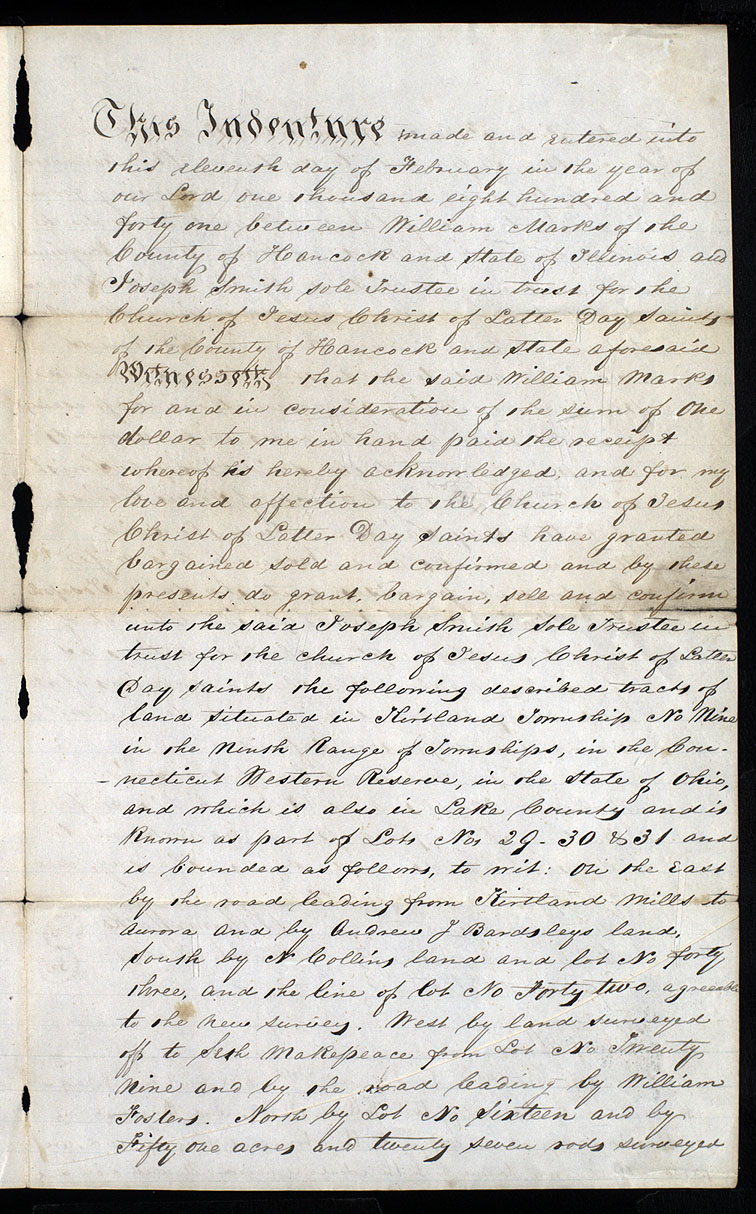 This Indenture made and entered into
this eleventh day of February in the year of
our Lord one thousand eight hundred and
forty one between William Marks of the
County of Hancock and State of Illinois and
Joseph Smith sole Trustee in trust for the
Church of Jesus Christ of Latter Day Saints
of the County of Hancock and State aforesaid
Witnesseth that the said William Marks
for and in consideration of the sum of One
dollar to me in hand paid the receipt
whereof is hereby acknowledged, and for my
love and affection to the Church of Jesus
Christ of Latter Day Saints have granted
bargained sold and confirmed and by these
presents do grant, bargain, sell and confirm
unto the said Joseph Smith Sole Trustee in
trust for the church of Jesus Christ of Latter
Day Saints the following described tracts of
land situated in Kirtland Township No Nine
in the Ninth Range of Townships, in the Con-
-necticut Western Reserve, in the State of Ohio,
and which is also in Lake County and is
Known as part of Lots Nos 29 - 30 & 31 and
is bounded as follows, to wit: On the East
by the road leading from Kirtland Mills to
Aurora and by Andrew J Bardsleys land,
South by N Collins land and lot No forty
three, and the line of lot No Forty two, agreeable
to the new survey. West by land surveyed
off to Seth Makepeace from Lot No Twenty
Nine and by the road leading by William
Fosters. North by Lot No Sixteen and by
Fifty one acres and twenty seven rods surveyed